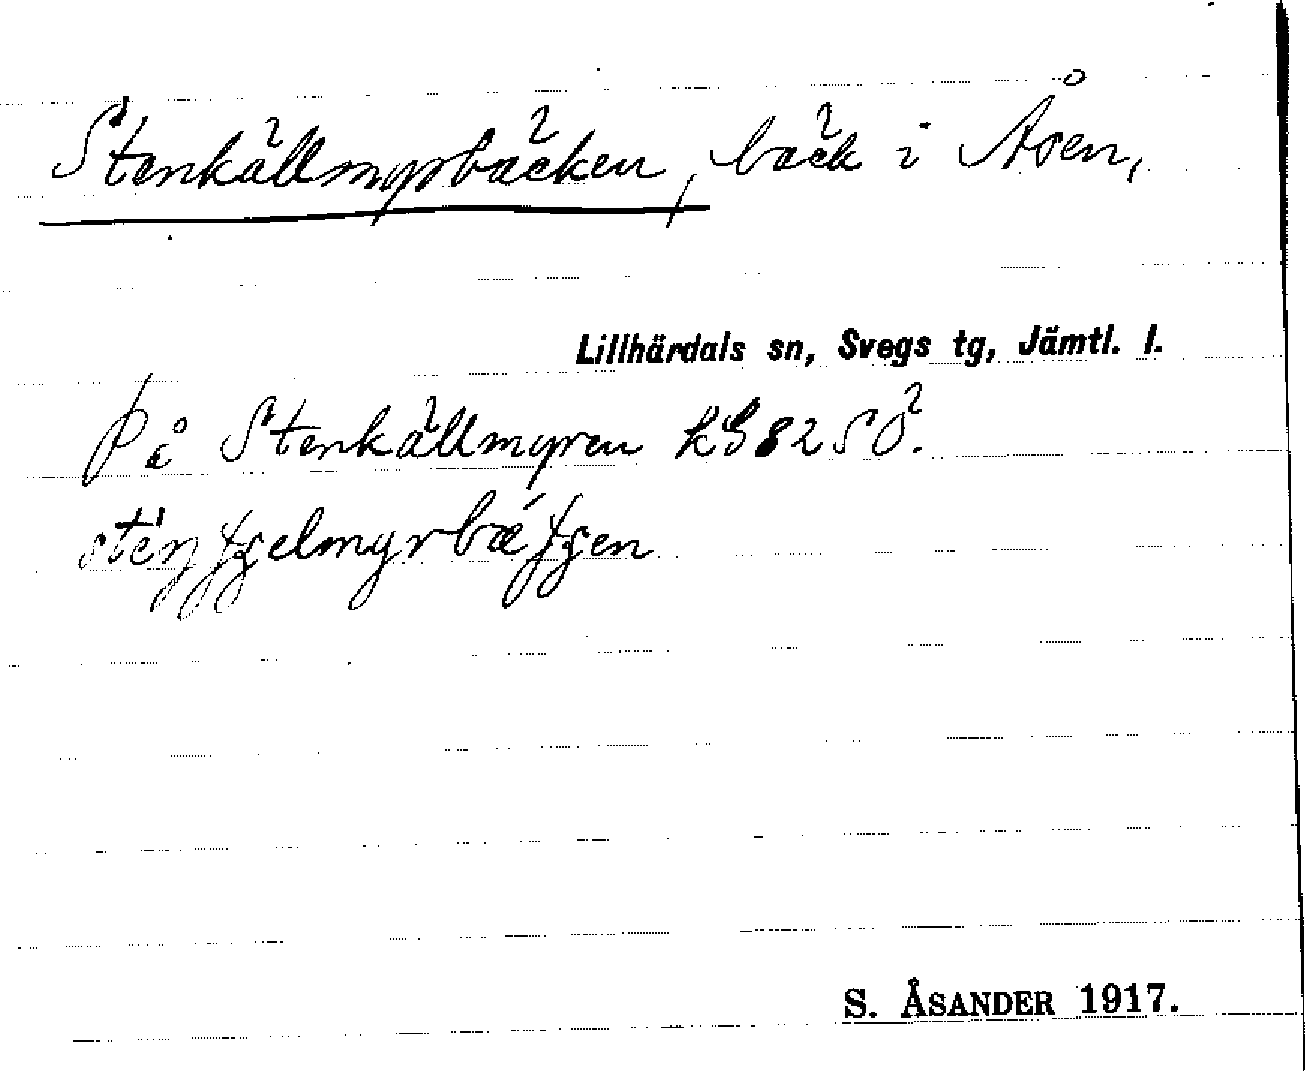 Stenkällmyrbäcken, bäck i Åsen,
Lillhärdals sn, Svegs tg, Jämtl. l.
På Stenkällmyren KG 82 SÖ.
S. ÅSANDER 1917.